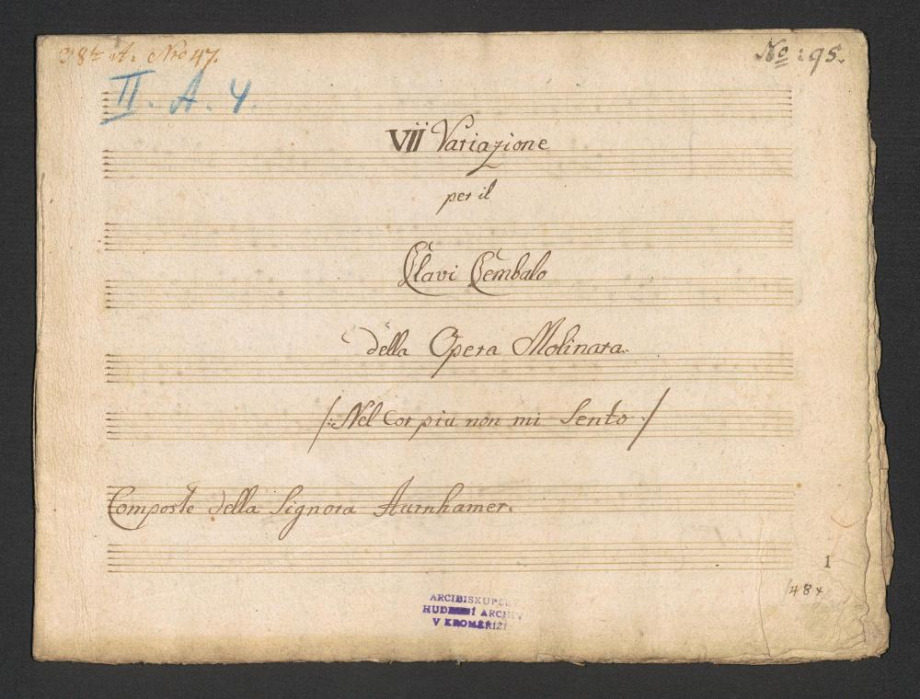 38te A: Nro 47.
No: 95.
II. A. 4.
VII Variazione
per il
Clavi Cembalo
della Opera Molinara.
/: Nel Cor piu non mi Sento :/
Composte della Signora Aurnhamer.
1
48x
ARCIBISKUPSKÝ
HUDEBNÍ ARCHIV
V KROMĚŘÍŽI